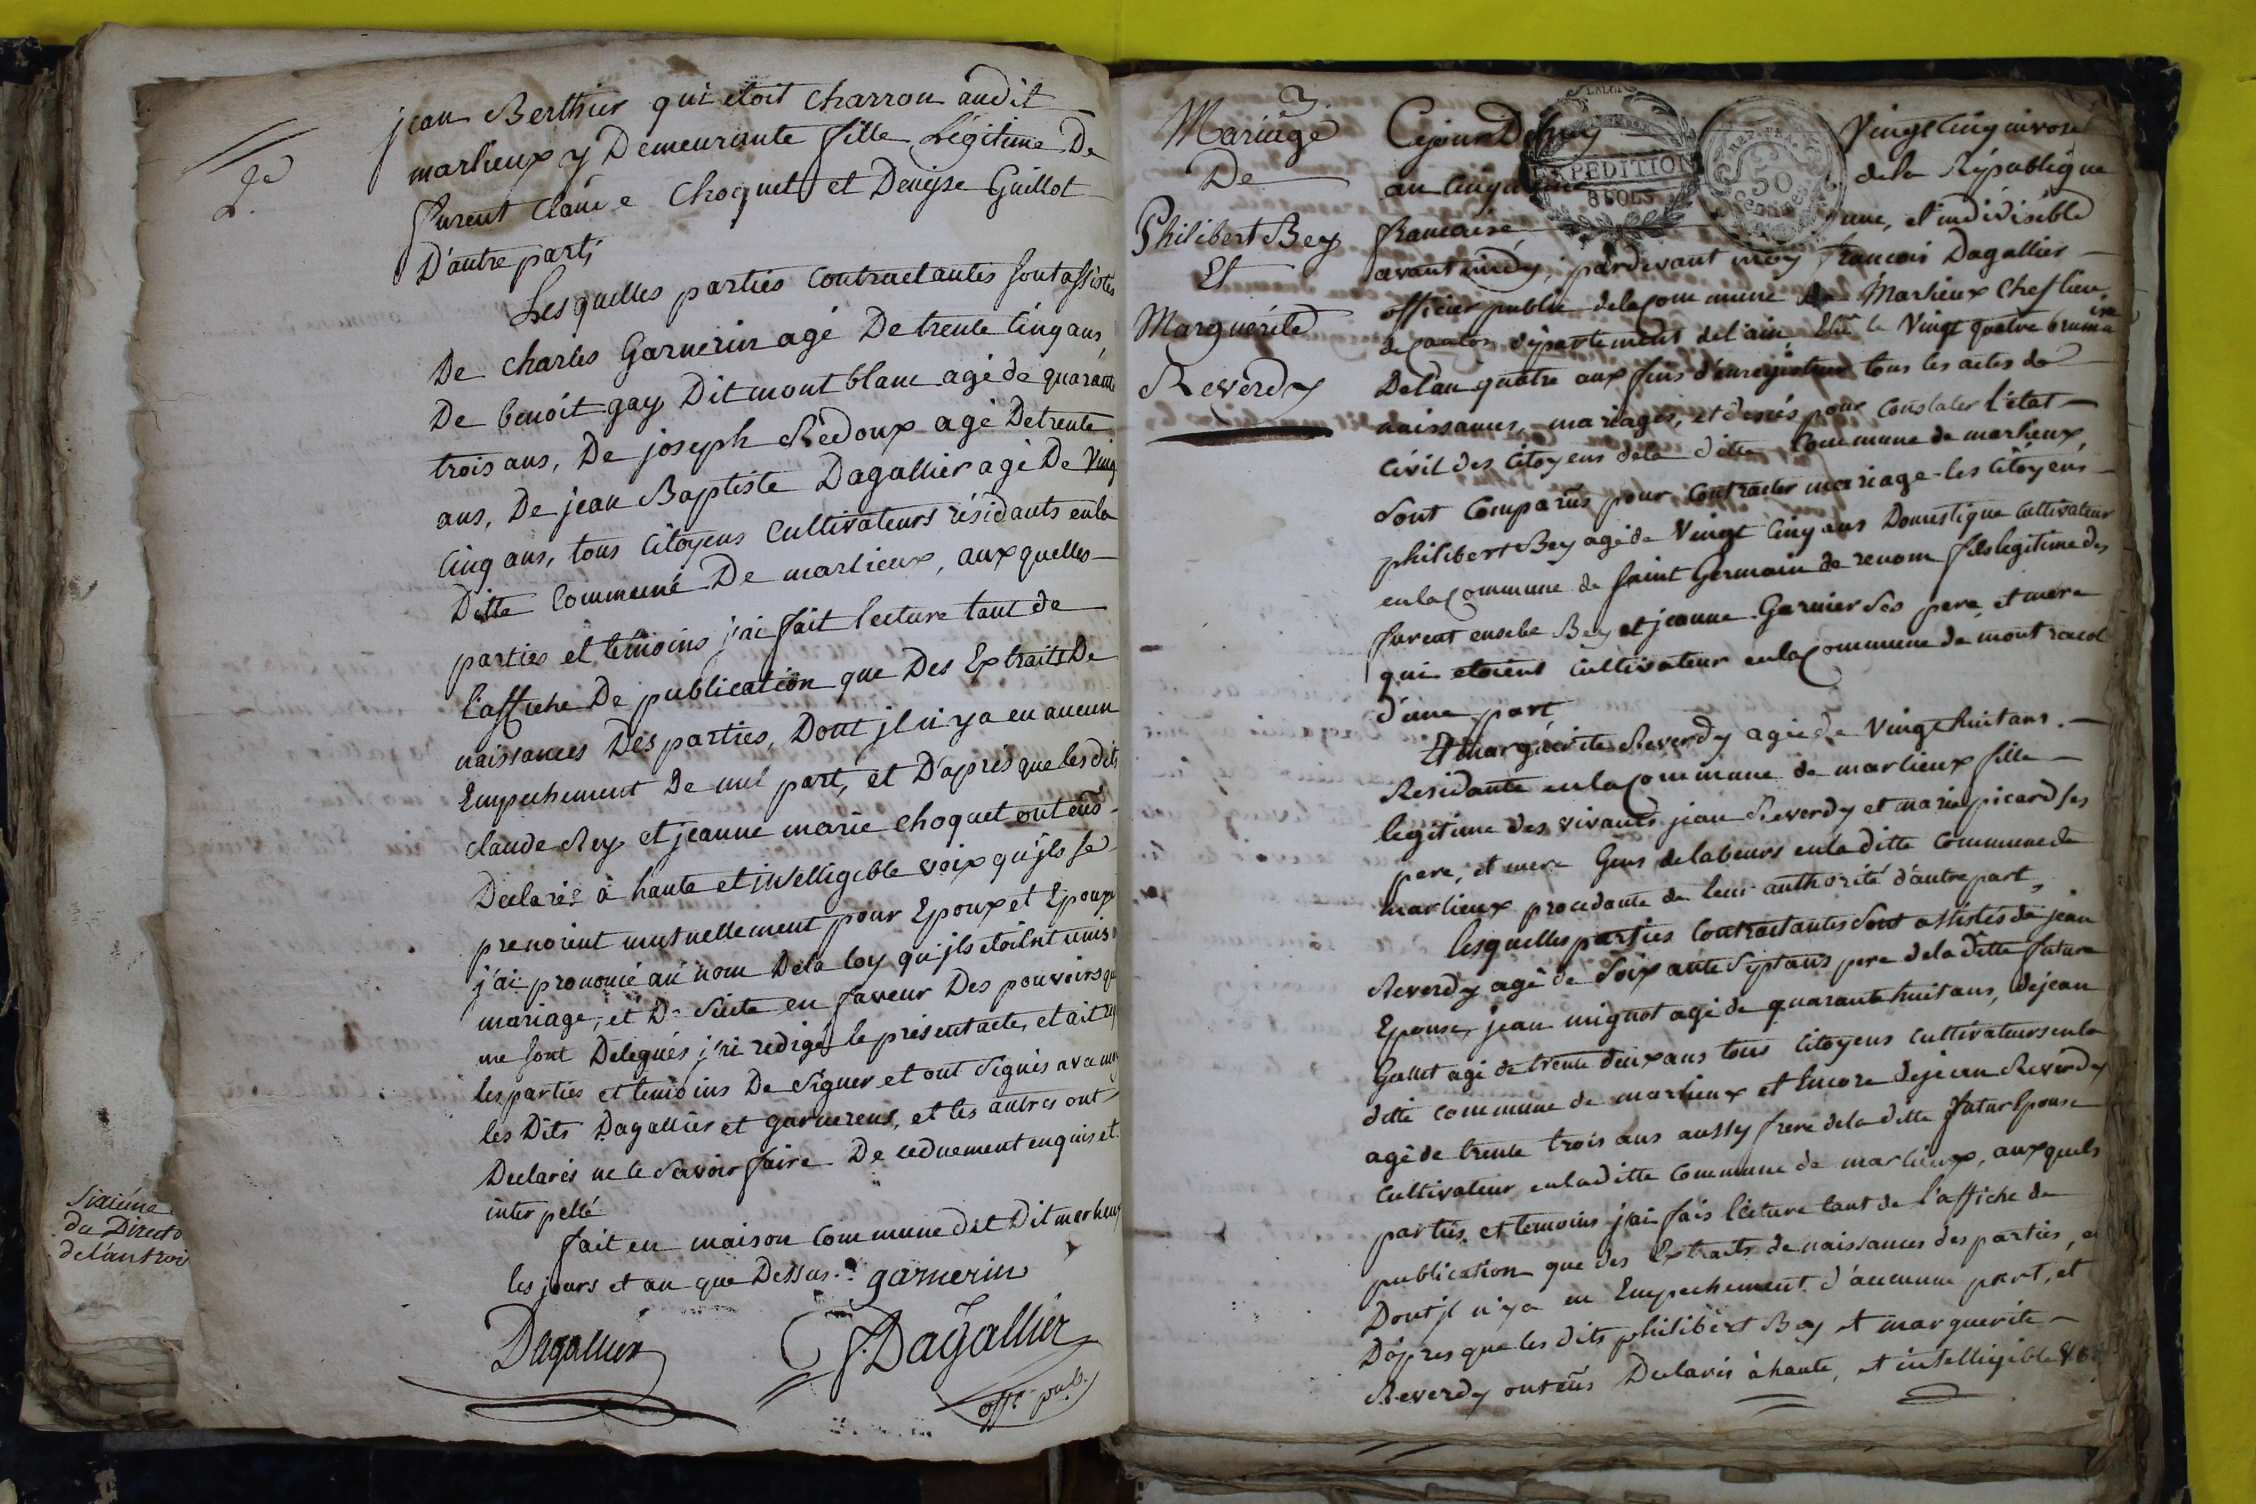 2e
jean Berthier qui etoit charron audit
marlieux y Demeurante fille Légitime De
furent Claude Choquet et Denyse Guillot
D'autre part,
Les quelles parties Contractantes sont assistés
De charles Garnerin agé De trente Cinq ans,
De benoit gay Dit mont blanc agé de quarante
trois ans, De joseph Redoux agé De trente
ans, De jean Baptiste Dagallier agé De Ving
Cinq ans, tous Citoyens Cultivateurs résidants en la
Ditte Commune De marlieux, aux quelles
parties et temoins j'ai fait lecture tant de
l'affiche De publication que Des Extraits De
naissances Des parties, Dont jl n'y a eu aucun
Empechement De nul part, et D'après que les dits
claude Rey et jeanne marie choquet ont eûs
Declarés à haute et intelligible voix qu'jls se
prenoient mutuellement pour Epoux et Epouse
j'ai prononcé au nom De la loy qu'jls etoient unis
mariage, et De suite en faveur Des pouvoirs qui
me sont Delegués j'ai redigé le présent acte, et ait
les parties et temoins De Signer et ont Signés avec moy
les Dits Dagallier et garnerens, et les autres ont
Declarés ne le Savoir faire De ce duement enquis et
interpellé
fait en maison Commune dudit Dit marlieux
les jours et an que Dessus. garnerin
Dagallier
f. Dagallier
offr. pub.
Sixieme
du Directo
de l'an trois
Mariage
De
Philibert Bey
Et
Marguérite
Reverdy
3
EXPEDITION
8 SOLS
50
Centimes
Cejourd'huy Vingt Cinq nivose
an Cinquieme de la République
francaise une, et indivisible
avant midy, pardevant moy francois Dagallier
officier public de la Commune de Marlieux Chef lieu
de Canton département de l'ain Elû le Vingt quatre brumaire
De l'an quatre aux fins d'enregistrer tous les actes de
naissances, mariages, et decés pour constater l'état
Civil des Citoyens de la ditte Commune de marlieux,
Sont Comparus pour Contracter mariage les Citoyens
philibert Bey agé de Vingt Cinq ans Domestique cultivateur
en la Commune de Saint Germain de renom fils legitime des
furent Bey et jeanne Garnier Ses pere et mere
qui etoient Cultivateur en la Commune de mont racol
d'une part,
Et marguérite Reverdy agée de Vingt huit ans.
Residante en la Commune de marlieux fille
legitime des vivants jean Reverdy et marie picard ses
pere, et mere Gens de labeurs en la ditte Commune de
marlieux procedante de leur authorité d'autre part,
les quelles parties Contractantes Sont assistés de jean
Reverdy agé de Soixante Sept ans pere de la ditte future
Epouse, jean mignot agé de quarante huit ans, de jean
Gallet agé de trente deux ans tous Citoyens cultivateurs en la
ditte commune de marlieux et Encore de jean Reverdy
agé de trente trois ans aussy frere de la ditte futur Epouse
Cultivateur en la ditte Commune de marlieux, aux quels
parties, et temoins j'ai fais lécture tant de l'affiche de
publication que des Extraits de naissances des parties,
Dont jl n'y a eu Empechement d'aucune part, et
D'après que les dits philibert Bey et marguerite
Reverdy ont eûs Declarés à haute, et intelligible voix